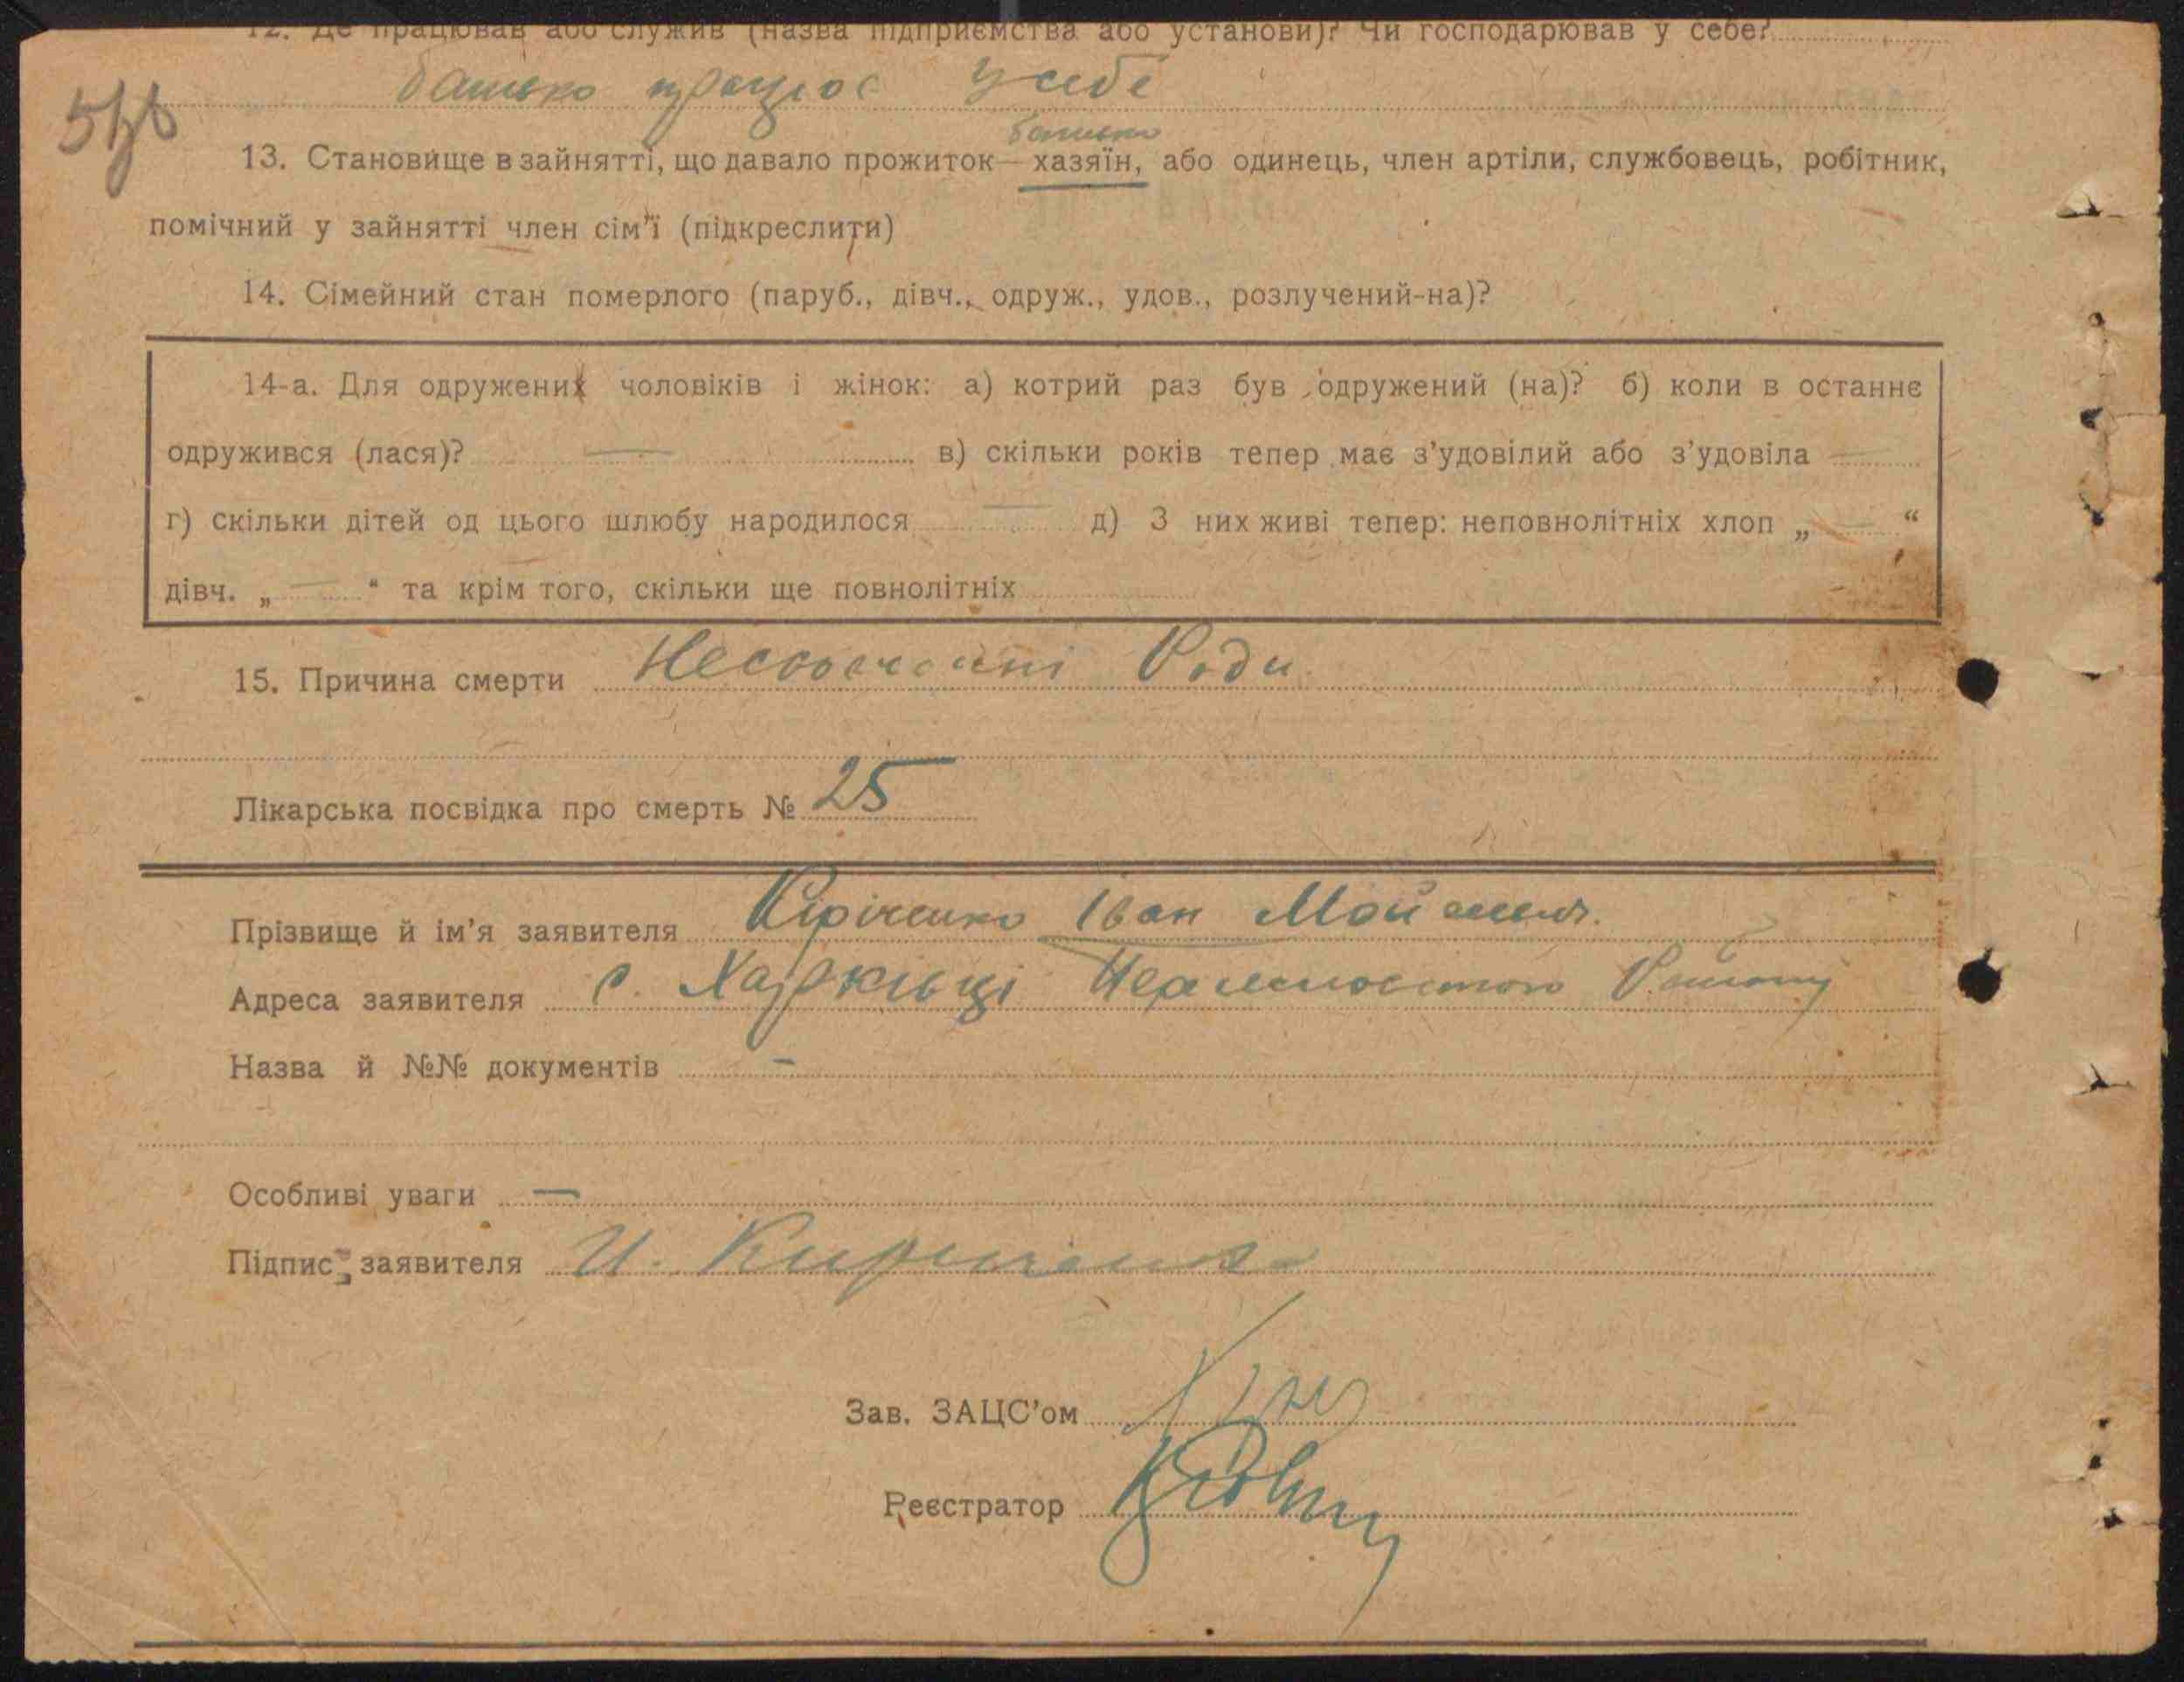 12. Де працював або служив (назва підприємства або установи)? Чи господарював у себе?
батько працює у себе
батько
13. Становище в зайнятті, що давало прожиток — хазяїн, або одинець, член артіли, службовець, робітник,
помічний у зайнятті член сім'ї (підкреслити)
14. Сімейний стан померлого (паруб., дівч., одруж., удов., розлучений-на)?
14-а. Для одружених чоловіків і жінок: а) котрий раз був одружений (на)? б) коли в останнє
одружився (лася)? — в) скільки років тепер має з'удовілий або з'удовіла —
г) скільки дітей од цього шлюбу народилося — д) З них живі тепер: неповнолітніх хлоп „ — “
дівч. „ — “ та крім того, скільки ще повнолітніх
15. Причина смерти Роди
Лікарська посвідка про смерть № 25
Прізвище й ім'я заявителя Кіріченко Іван
Адреса заявителя с. Харківці Району
Назва й №№ документів —
Особливі уваги —
Підпис заявителя И. Кириченко
Зав. ЗАЦС'ом
Реєстратор